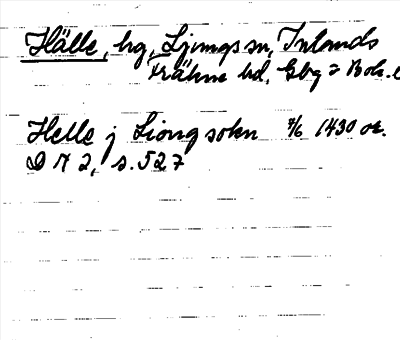 Hälle, hg, Ljungs sn, Inlands
Fräkne hd, Gbg o Boh. l
Helle j Liong sokn 7/6 1430 or.
D N 2, s. 527